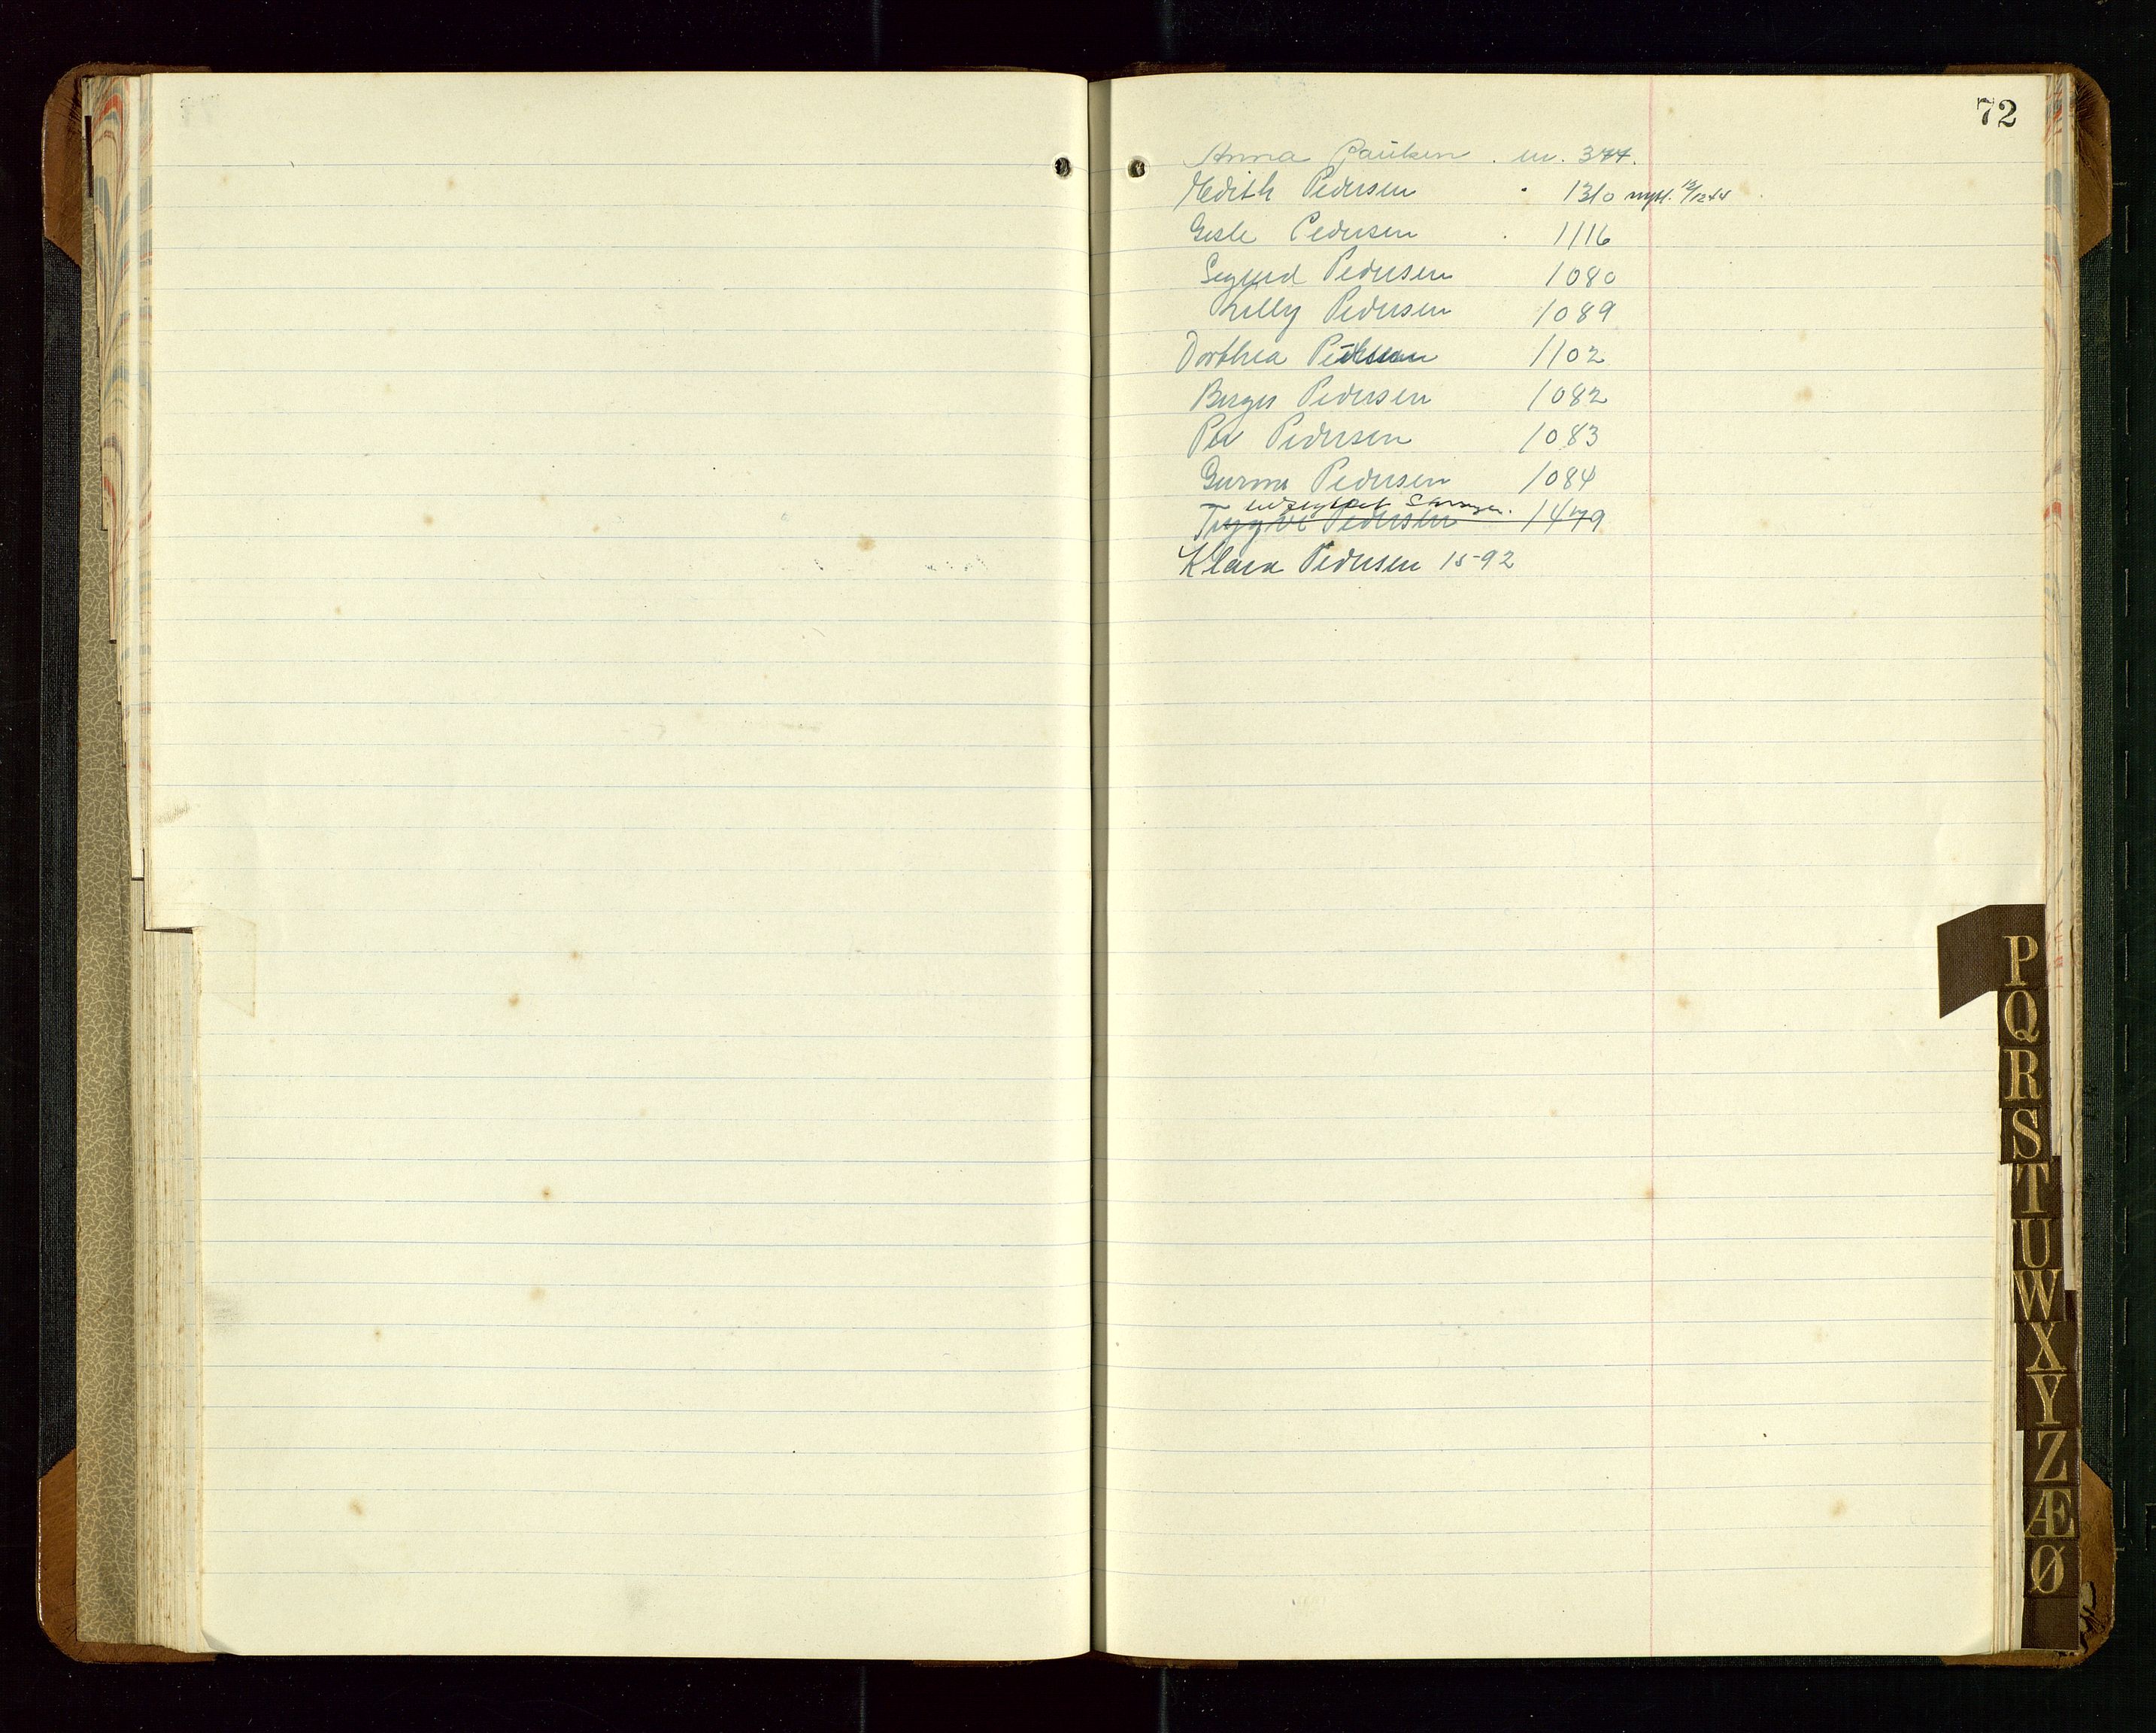 72
Anna Paulsen . m. 377.
Edith Pedersen . 1310 mystl. 13/12 44
Gisle Pedersen . 1116
Sigurd Pedersen 1080
Lilly Pedersen 1089
Dorthea Pedersen 1102
Birger Pedersen 1082
Per Pedersen 1083
Gunna Pedersen 1084
utflyttet Stavanger.
Trygve Pedersen 1479
Klara Pedersen 1592
P
Q
R
S
T
U
W
X
Y
Z
Æ
Ø